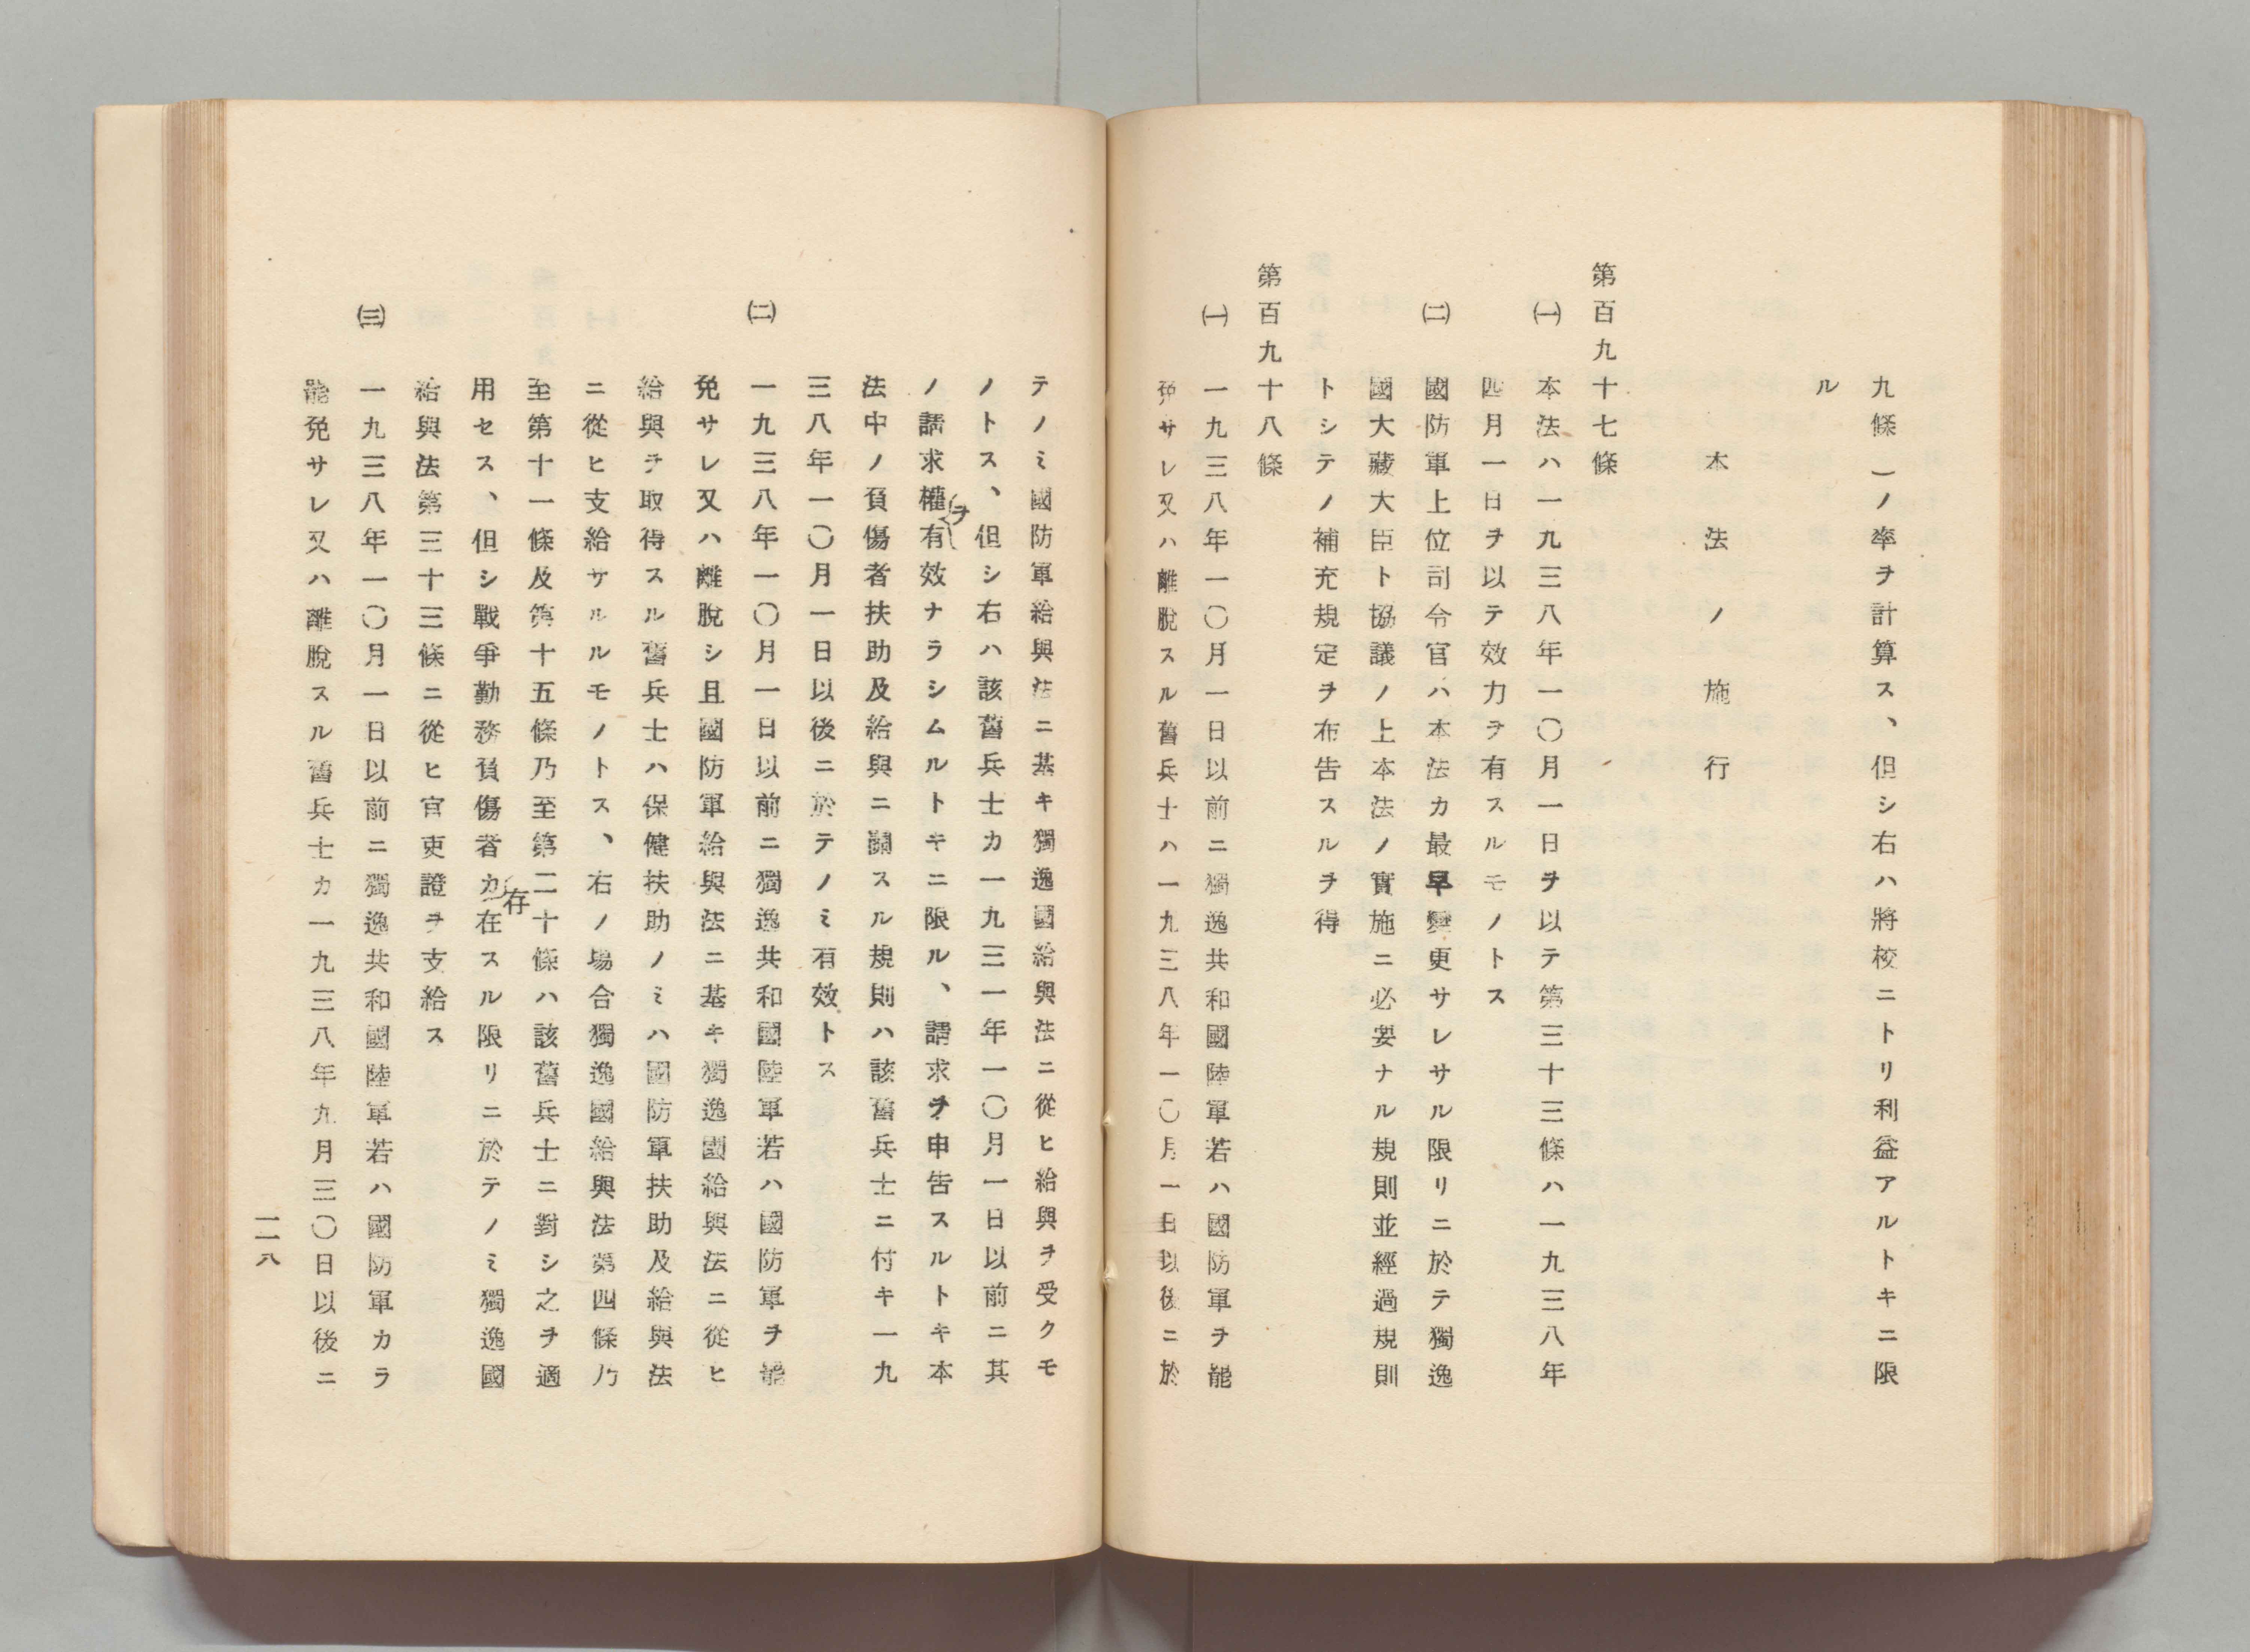 九條)ノ率ヲ計算ス、但シ右ハ將校ニトリ利益アルトキニ限
ル
本法ノ施行
第百九十七條
㈠ 本法ハ一九三八年一〇月一日ヲ以テ第三十三條ハ一九三八年
四月一日ヲ以テ效力ヲ有スルモノトス
㈡ 國防軍上位司令官ハ本法カ最早變更サレサル限リニ於テ獨逸
國大藏大臣ト協議ノ上本法ノ實施ニ必要ナル規則並經過規則
トシテノ補充規定ヲ布告スルヲ得
第百九十八條
㈠ 一九三八年一〇月一日以前ニ獨逸共和國陸軍若ハ國防軍ヲ能
免サレ又ハ離脫スル舊兵士ハ一九三八年一〇月一日以後ニ於
テノミ國防軍給與法ニ基キ獨逸國給與法ニ從ヒ給與ヲ受クモ
ノトス、但シ右ハ該舊兵士カ一九三一年一〇月一日以前ニ其
ノ請求權ヲ有效ナラシムルトキニ限ル、請求ヲ申告スルトキ本
法中ノ負傷者扶助及給與ニ關スル規則ハ該舊兵士ニ付キ一九
三八年一〇月一日以後ニ於テノミ有效トス
㈡ 一九三八年一〇月一日以前ニ獨逸共和國陸軍若ハ國防軍ヲ能
免サレ又ハ離脫シ且國防軍給與法ニ基キ獨逸國給與法ニ從ヒ
給與ヲ取得スル舊兵士ハ保健扶助ノミハ國防軍扶助及給與法
ニ從ヒ支給サルルモノトス、右ノ場合獨逸國給與法第四條乃
至第十一條及第十五條乃至第二十條ハ該舊兵士ニ對シ之ヲ適
用セス、但シ戰爭勤務負傷者カ存在スル限リニ於テノミ獨逸國
給與法第三十三條ニ從ヒ官吏證ヲ支給ス
㈢ 一九三八年一〇月一日以前ニ獨逸共和國陸軍若ハ國防軍カラ
能免サレ又ハ離脫スル舊兵士カ一九三八年九月三〇日以後ニ
一二八